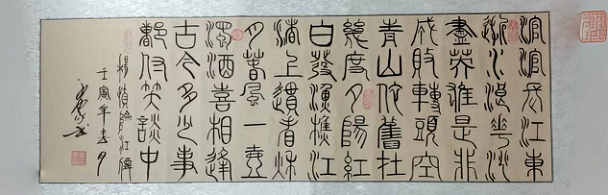 滾滾長江東
逝水浪花淘
盡英雄是非
成敗轉頭空
青山依舊在
幾度夕陽紅
白發漁樵江
渚上慣看秋
月春風一壺
濁酒喜相逢
古今多少事
都付笑談中
楊慎臨江僊
壬寅年春月